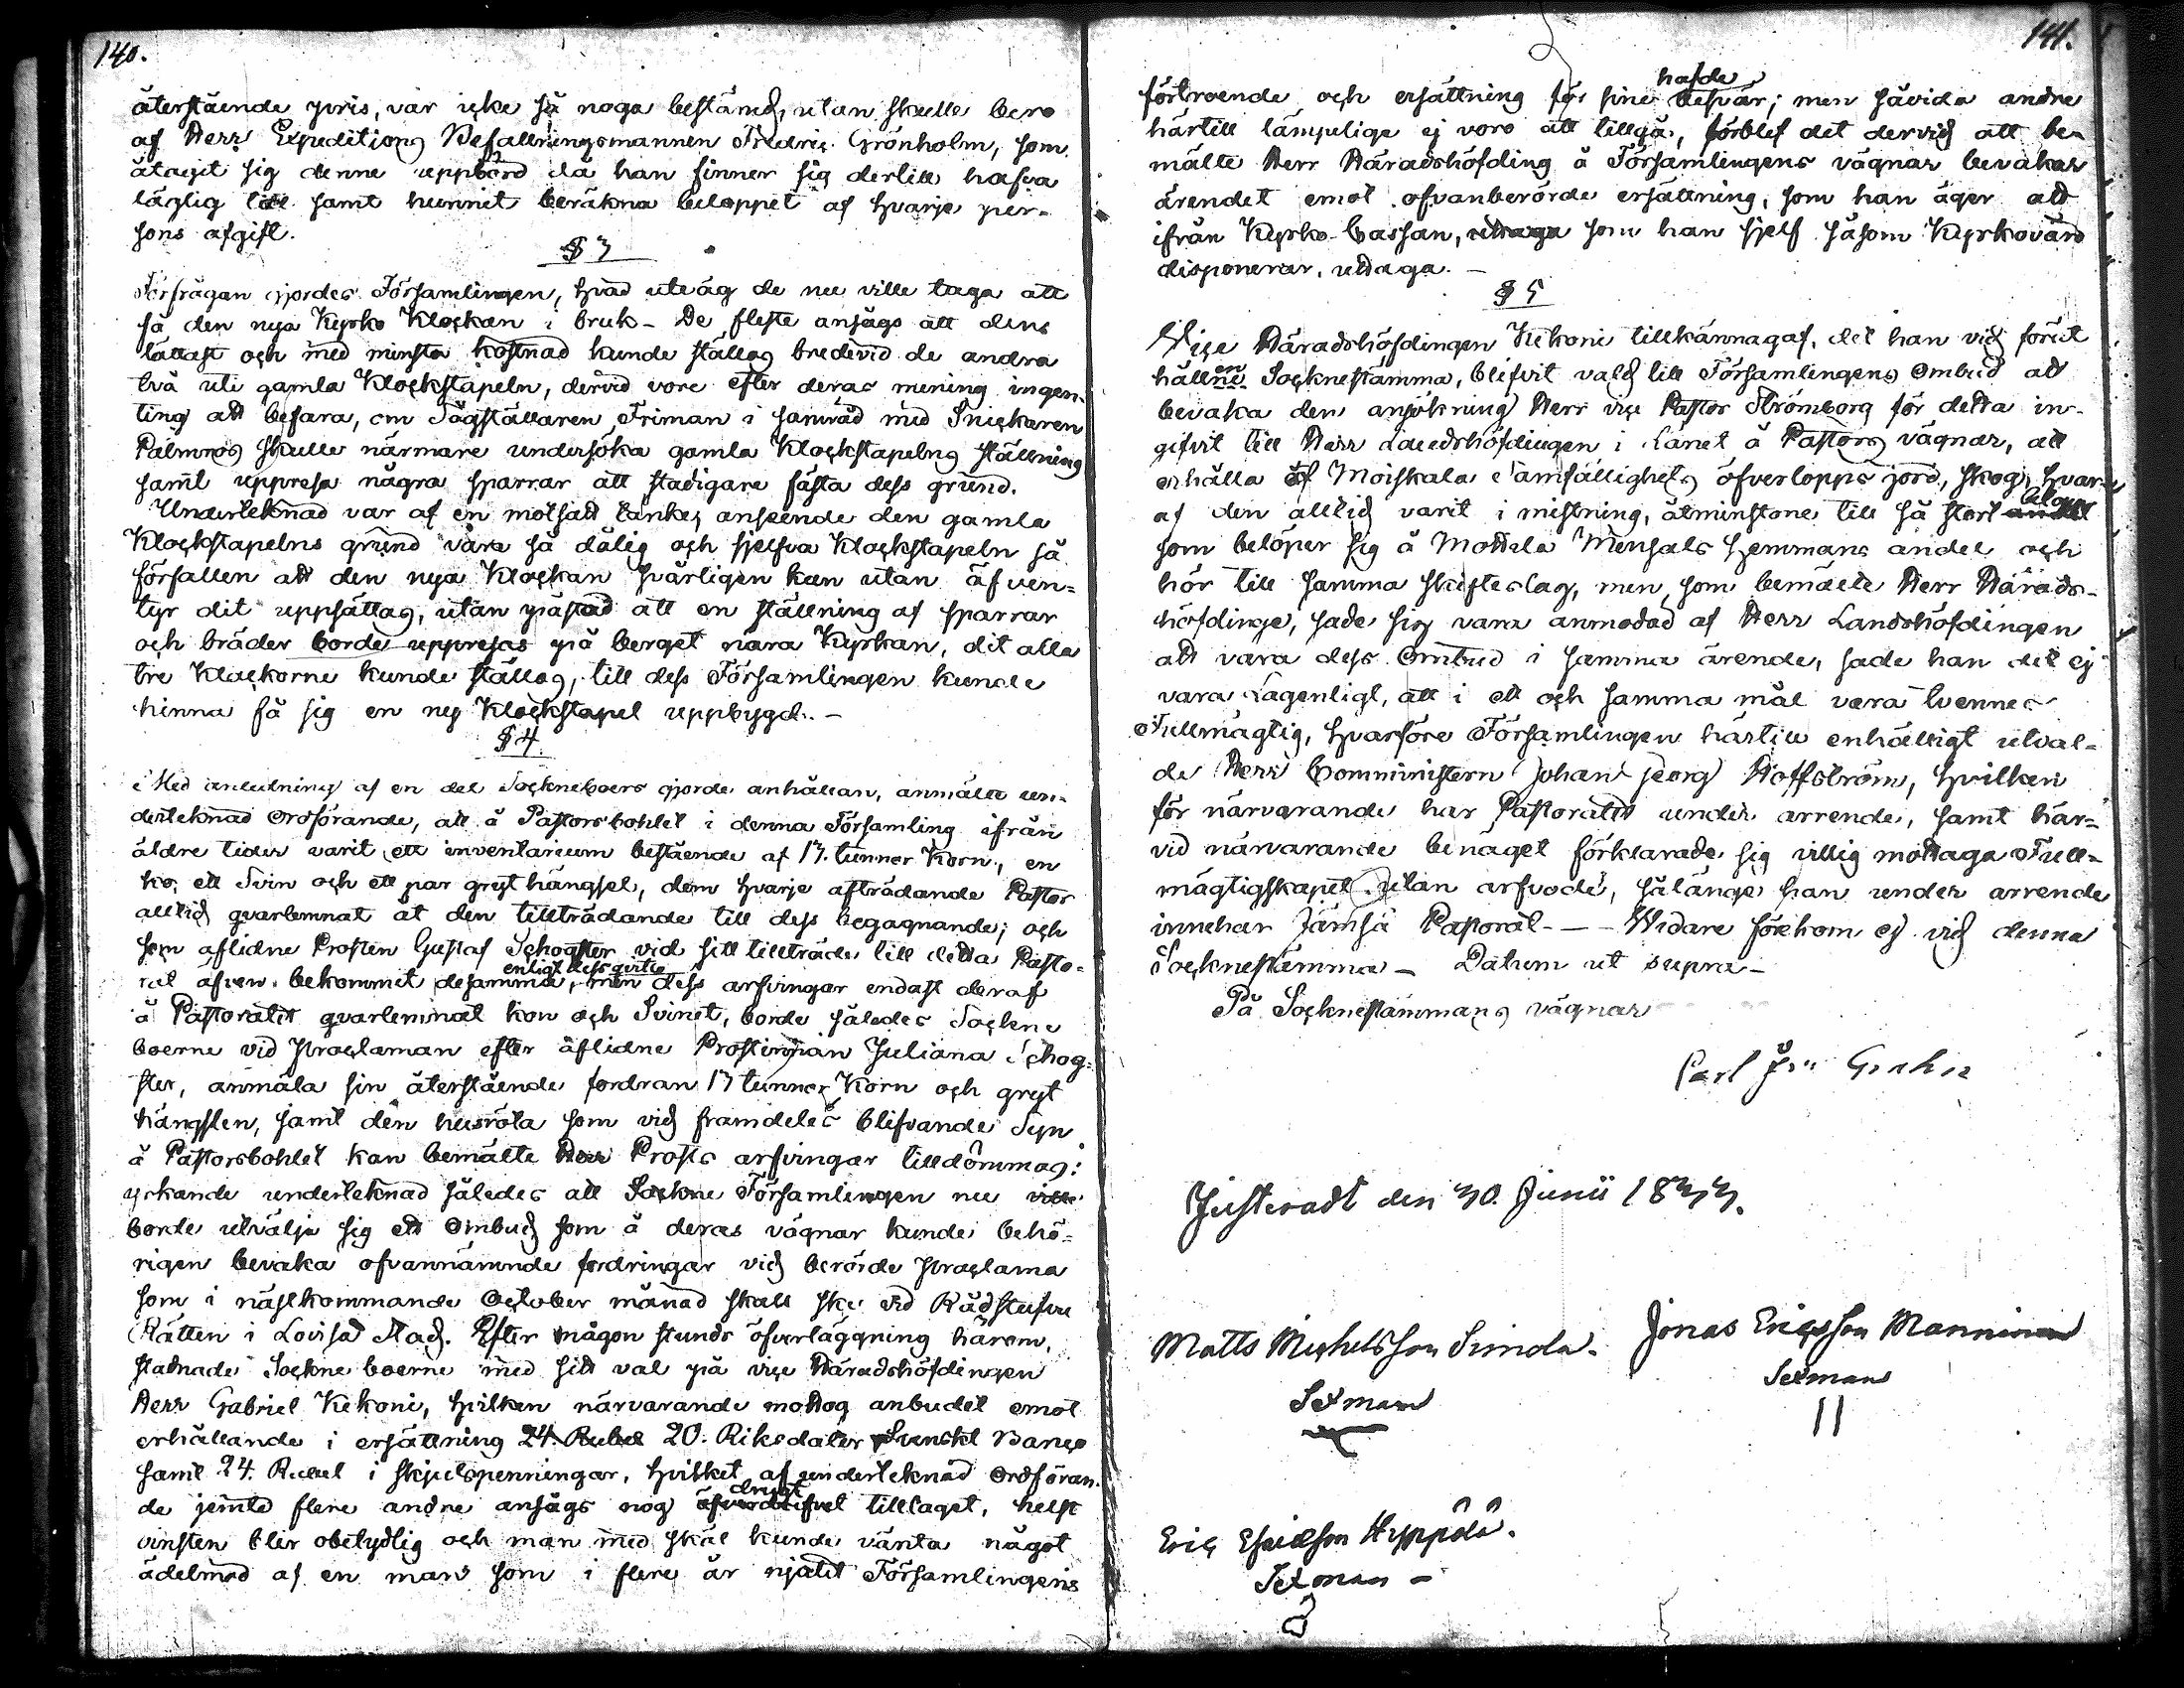 140.
återstående pris, var icke så noga bestämd, utan skulle bero
af Herr Expeditions Befallningsmannen Fredric Grönholm, som
åtagit sig denne uppbörd då han finner sig dertill hafva
läglig tid samt hunnit beräkna beloppet af hvarje per-
sons afgift.
§ 3
Förfrågan gjordes Församlingen, hvad utväg de nu ville taga att
få den nya Kyrko Klockan i bruk – De fleste ansågs att dens
lättast och med minsta kostnad kunde ställas bredevid de andra
två uti gamla Klockstapeln, dervid vore efter deras mening ingen-
ting att befara, om Tågställaren Friman i samråd med Snickaren
Palmros skulle närmare undersöka gamla Klockstapelns ställning
samt uppresa några sparrar att stadigare fästa dess grund.
Underteknad var af en motsatt tanke, anseende den gamla
Klockstapelns grund vara så dålig och sjelfva Klockstapeln så
förfallen att den nya Klockan svårligen kan utan äfven-
tyr dit uppsättas, utan påstod att en ställning af sparrar
och bräder borde uppresas på berget nära Kyrkan, dit alla
tre Klockorne kunde ställas, till dess Församlingen kunde
hinna få sig en ny Klockstapel uppbygd. –
§ 4.
Med anledning af en del Sockneboers gjorde anhållan, anmälte un-
derteknad Ordförande, att å Pastorsbohlet i denna Församling ifrån
äldre tider varit ett inventarium bestående af 13. tunnor Korn, en
ko, ett Svin och ett par grythängsel, dem hvarje afträdande Pastor
alltid qvarlemnat åt den tillträdande till dess begagnande; och
som aflidne Prosten Gustaf Schogster vid sitt tillträde till detta Pasto-
enligt dess qvitto
rat äfven bekommit desamma, men dess arfvingar endast deraf
å Pastoratet qvarlemnat kon och Svinet, borde således Sockne
boerne vid Proclaman efter aflidne Prostinnan Juliana Schog-
ster, anmäla sin återstående fordran 13 tunnor Korn och gryt
hängslen, samt den husröta som vid framdeles blifvande Syn
å Pastorsbohlet kan bemälte Herr Prosts arfvingar tilldömmas:
yrkande underteknad således att Sockne Församlingen nu ville
borde utvälja sig ett Ombud som å deras vägnar kunde behö-
rigen bevaka ofvannämnde fordringar vid berörde Proclama
som i nästkommande October månad skall ske vid Rådstufvu
Rätten i Lovisa Stad. Efter någon stunds öfverläggning härom,
stadnade Sockneboerne med sitt val på vice Häradshöfdingen
Herr Gabriel Kekoni, hvilken närvarande mottog anbudet emot
erhållande i ersättning 24. Rubel 20. Riksdaler Svenskt Banco
samt 24. Rubel i skjutspenningar, hvilket af underteknad Ordföran-
drygt
de jemte flere andre ansågs nog öfverdrifvet tilltaget, helst
vinsten blir obetydlig och man med skäl kunde vänta något
ädelmod af en man som i flere år njutit Församlingens
141.
hafde
förtroende och ersättning för sine besvär; men såvida andre
härtill lämpelige ej voro att tillgå, förblef det dervid att be-
mälte Herr Häradshöfding å Församlingens vägnar bevakar
ärendet emot ofvanberörde ersättning, som han äger att
ifrån Kyrko-Cassan, uttaga som han sjelf såsom Kyrkovärd
disponerar, uttaga. –
§ 5
Vice Häradshöfdingen Kekoni tillkännagaf, det han vid förut
en
hållne Socknestämma, blifvit vald till Församlingens Ombud att
bevaka den ansökning Herr vice Pastor Strömborg för detta in-
gifvit till Herr Landshöfdingen i Länet å Pastors vägnar, att
erhålla af Moiskala Samfällighets öfverlopps jord, skog, hvar-
belopp
af den alltid varit i mistning, åtminstone till så stort andel
som belöper sig å Mottala Mensals hemmans andel och
hör till samma skifteslag, men som bemälte Herr Härads-
höfdinge, sade sig vara anmodad af Herr Landshöfdingen
att vara dess Ombud i samma ärende, sade han det ej
vara Lagenligt, att i ett och samma mål vara tvennes
Fullmägtig, hvarföre Församlingen härtill enhälligt utval-
de Herr Comministern Johan Georg Hoffström, hvilken
för närvarande har Pastoratet under arrende, samt här-
vid närvarande benäget förklarade sig villig mottaga Full-
mägtigskapet utan arfvode, sålänge han under arrende
innehar Jämsä Pastorat. – – Widare förekom ej vid denna
Socknestämma – Datum ut supra –
På Socknestämmans vägnar
Carl Grahn
Justeradt den 30. Junii 1833.
Matts Michelsson Simola.
Sexman
Jonas Ericsson Manninen
Sexman
Eric Hyppölä.
Sexman –